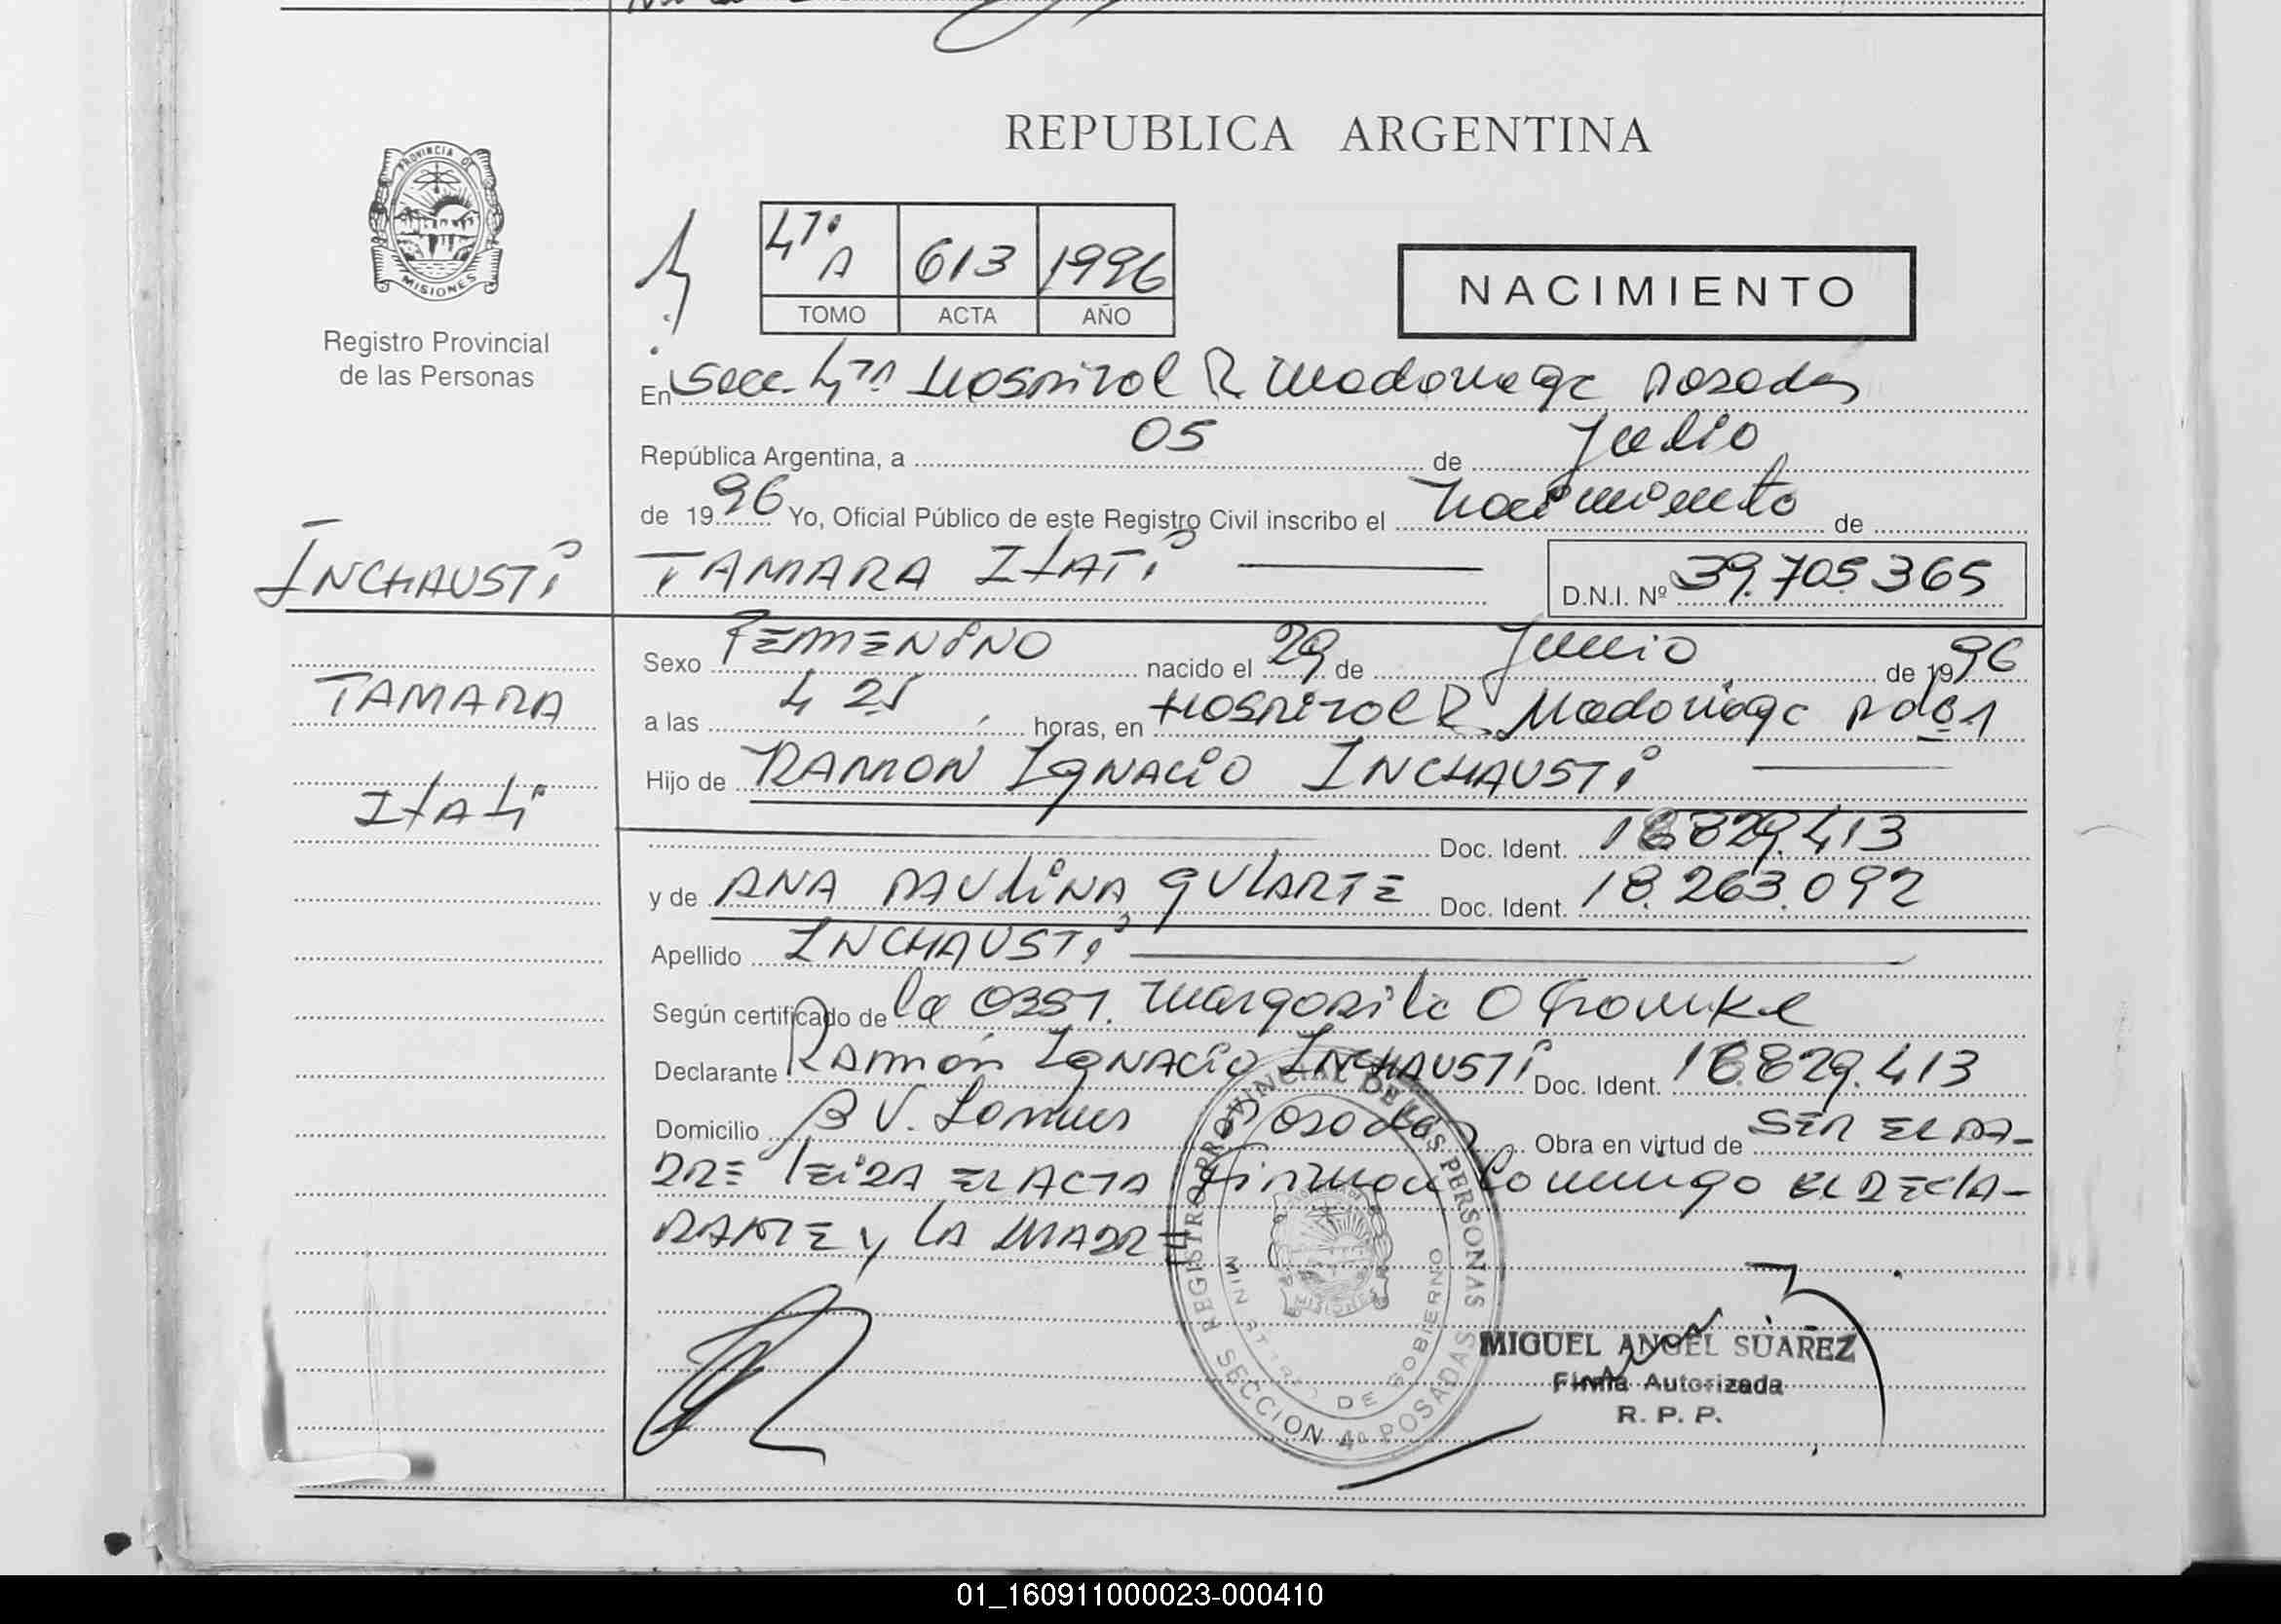 REPUBLICA ARGENTINA
PROVINCIA DE
MISIONES
Registro Provincial
de las Personas
4ta A 613 1996
TOMO ACTA AÑO
NACIMIENTO
En Secc. 4ta Hospital R Madariaga Posadas
República Argentina, a 05 de Julio
de 1996 Yo, Oficial Público de este Registro Civil inscribo el nacimiento de
INCHAUSTI
TAMARA ITATI
D.N.I. Nº 39.705.365
Sexo FEMENINO nacido el 29 de Junio de 1996
TAMARA
a las 4 25 horas, en Hospital R Madariaga
Hijo de RAMON IGNACIO INCHAUSTI
ITATI
Doc. Ident. 18.829.413
y de ANA PAULINA GULARTE Doc. Ident. 18.263.092
Apellido INCHAUSTI
Según certificado de la Obst. Margarita O
Declarante RAMÓN IGNACIO INCHAUSTI Doc. Ident. 18.829.413
Domicilio B V. Posadas Obra en virtud de SER EL PA-
DRE leida EL ACTA Firman Conmigo EL DECLA-
RANTE y LA MADRE
REGISTRO PROVINCIAL DE LAS PERSONAS
MINISTERIO DE GOBIERNO
MISIONES
SECCION 4a POSADAS
MIGUEL ANGEL SUAREZ
Firma Autorizada
R. P. P.
01_160911000023-000410